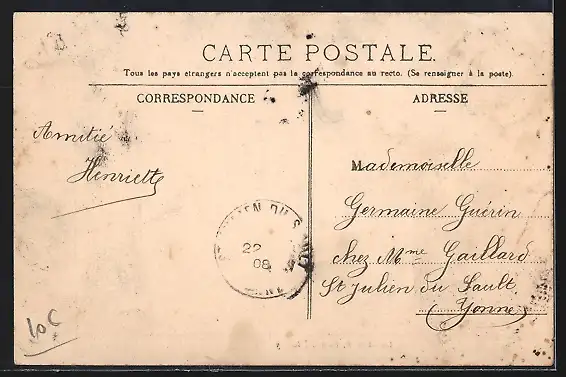 CARTE POSTALE.
Tous les pays étrangers n'acceptent pas la correspondance au recto. (Se renseigner à la poste).
CORRESPONDANCE
ADRESSE
Amitié
Henriette
Mademoiselle
Germaine Guérin
chez Mme Gaillard
St Julien du Sault
Yonne
22
08
10c